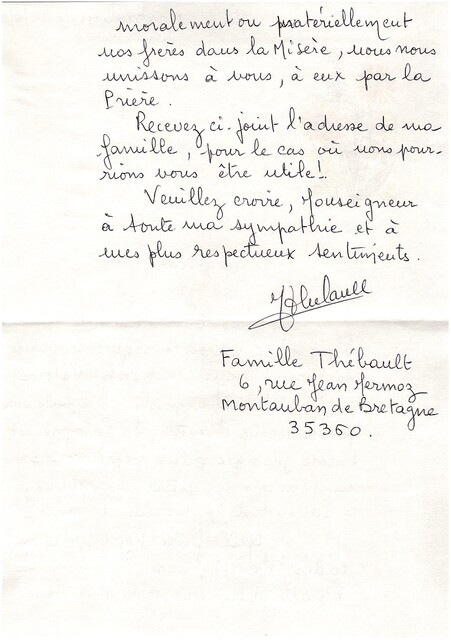 moralement ou matériellement
nos frères dans la Misère, nous nous
unissons à vous, à eux par la
Prière.
Recevez ci-joint l'adresse de ma
famille, pour le cas où nous pour-
rions vous être utile!.
Veuillez croire, Monseigneur
à toute ma sympathie et à
mes plus respectueux sentiments.
Thébault
Famille Thébault
6, rue Jean Mermoz
Montauban de Bretagne
35360.